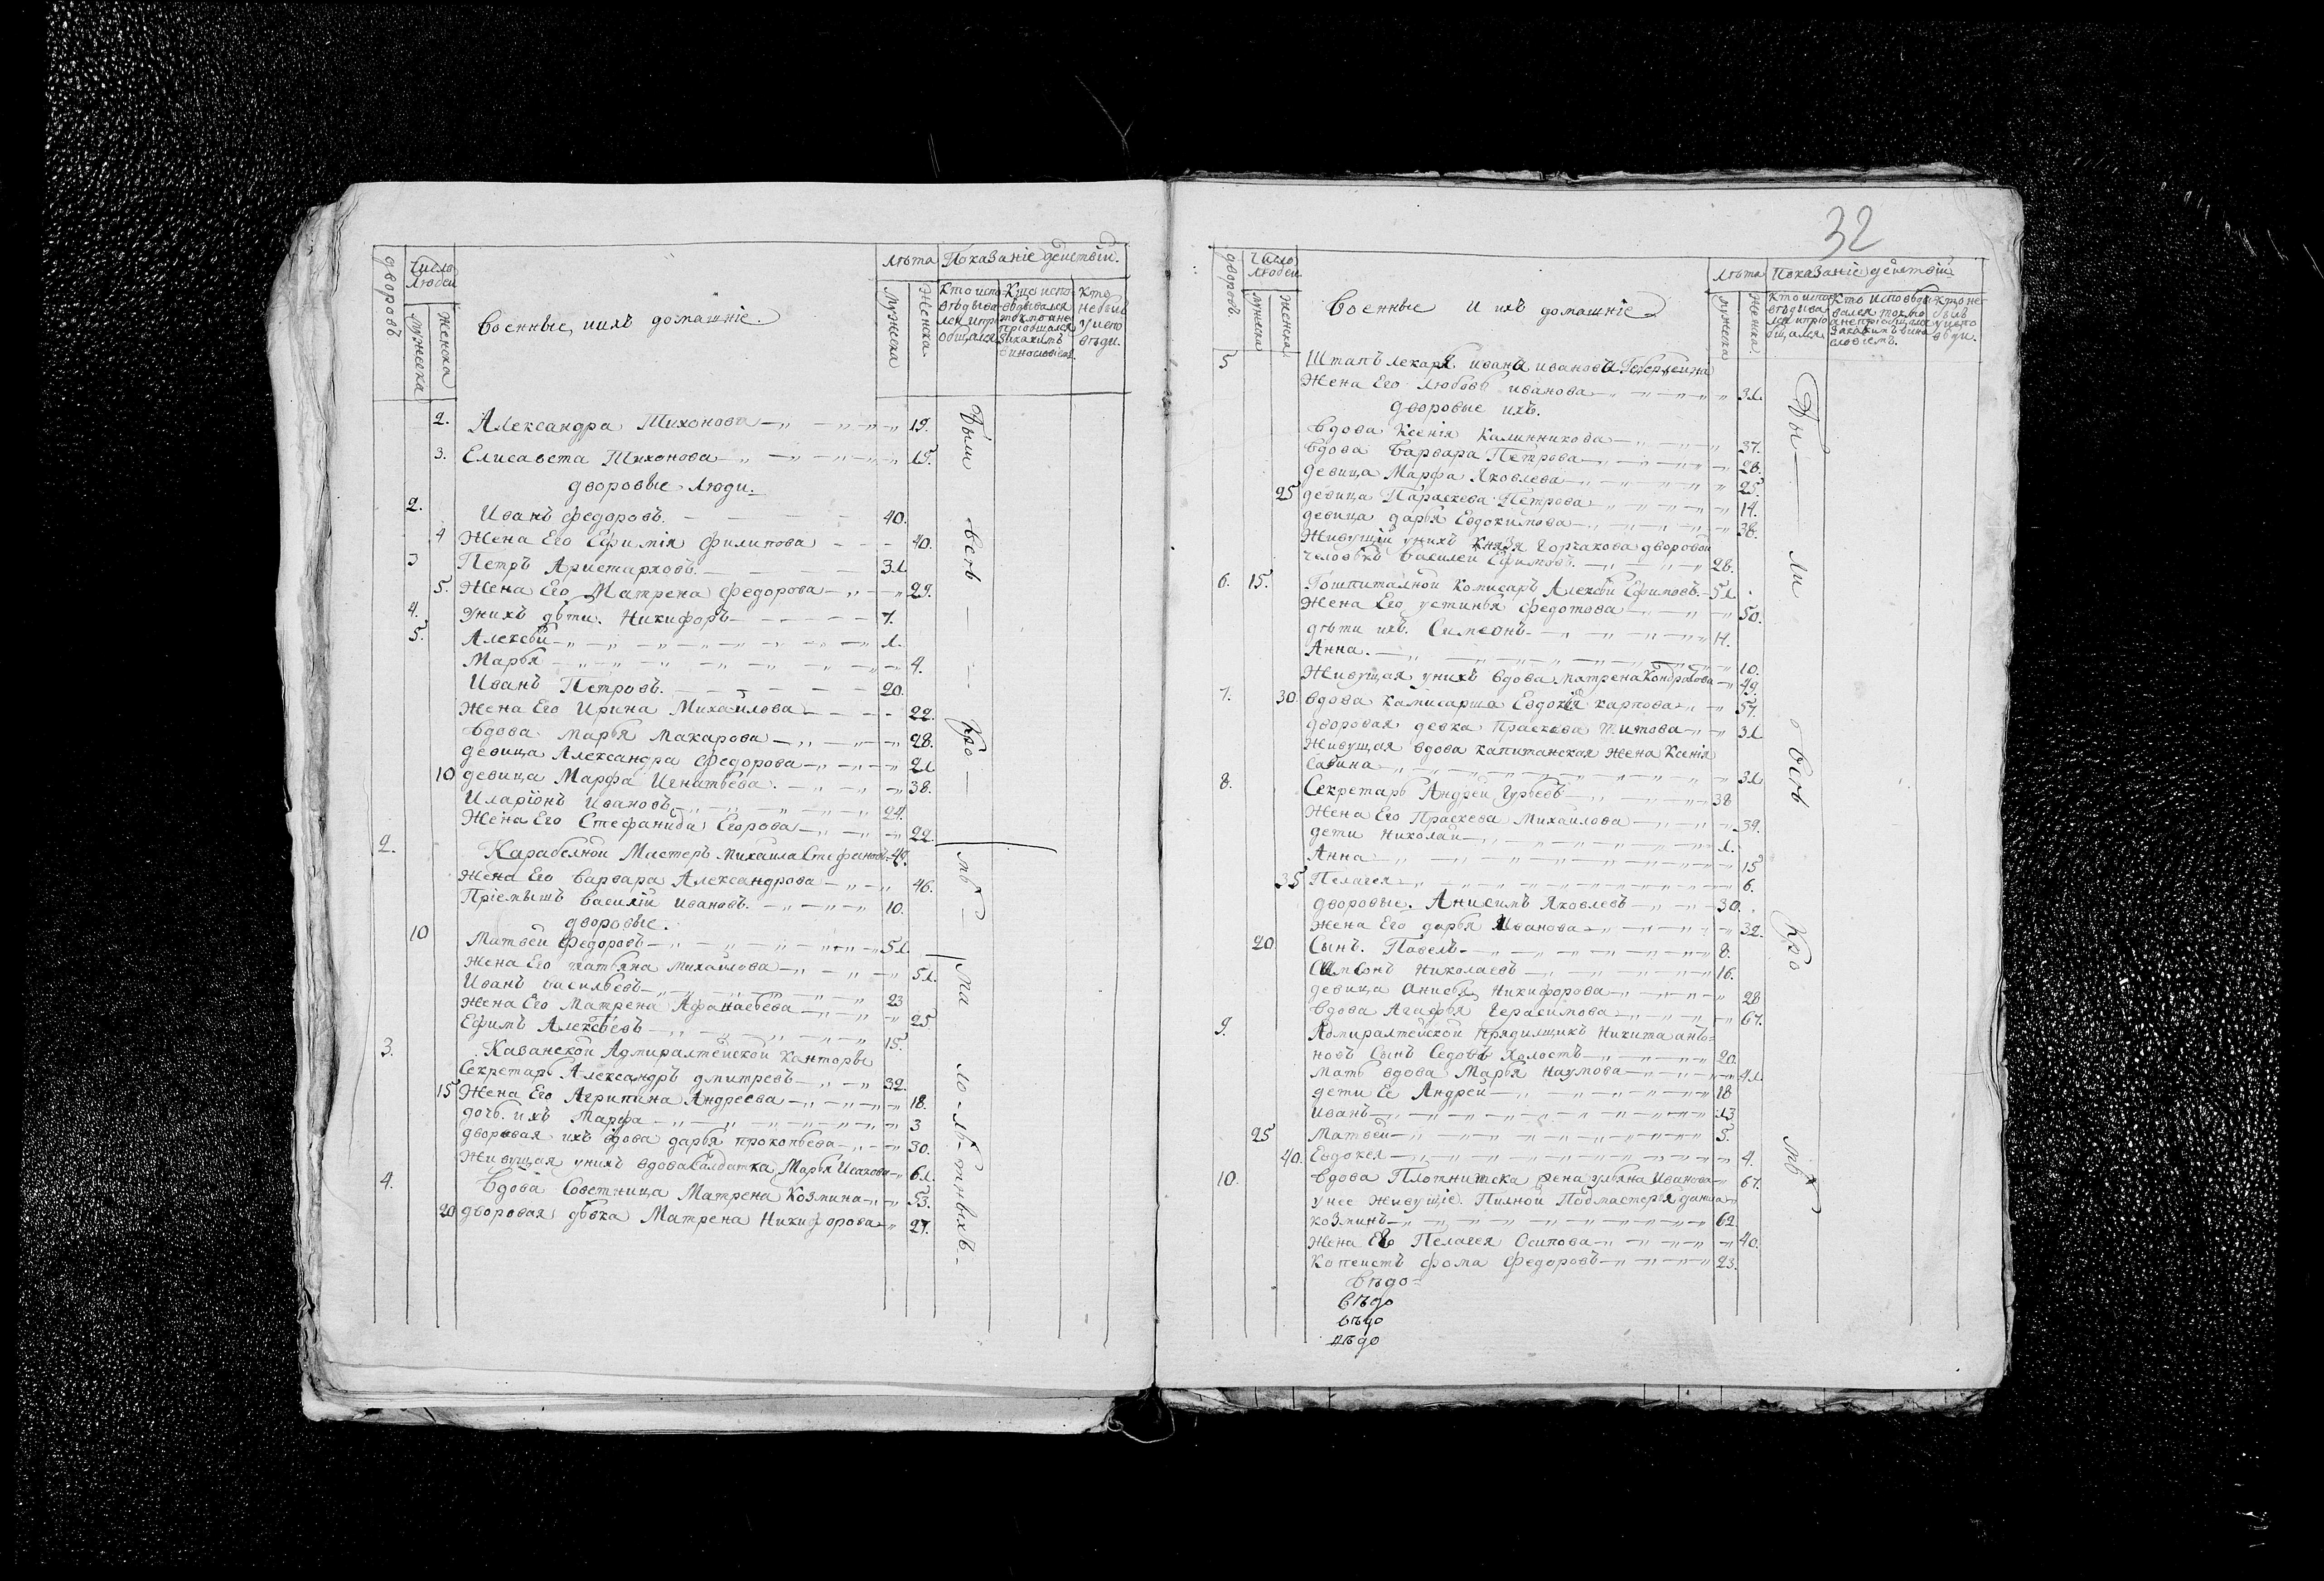 дворовъ
Число людей
мужеска
женска
Военные, иихъ домашніе.
лѣта
мужеска
женска
Показаніе действій.
Кто испо
ведыва
лся ипри
общался
Кто испо
ведывался
токмо не
пріобщался
Кто
небылъ
уиспо
веди.
2. Александра Тихонова 19.
3. Елисавета Тихонова 15.
дворовые Люди.
2. Иванъ Федоровъ. 40.
4 Жена Его Ефимія Филипова 40.
3 Петръ Аристарховъ. 31
5. Жена Его Матрена Федорова 29.
4. Унихъ дѣти. Никифоръ 7.
5. Алексѣй 1.
Марья 4.
Иванъ Петровъ. 20.
Жена Его Ирина Михаилова 22.
Вдова Марья Макарова 28.
девица Александра Федорова 21
10 девица Марфа Игнатьева. 38.
Иларіонъ Ивановъ 24.
Жена Его Стефанида Егорова 22.
2. Карабелной Мастеръ Михаила Стефановъ
Жена Его Варвара Александрова 46.
Пріемышъ Василій Ивановъ. 10.
дворовые.
10 Матвей Федоровъ 51
Жена Его татьяна Михайлова 51.
Иванъ Васильевъ 23
Жена Его Матрена Афанасьева 25
Ефимъ Алексѣевъ 15.
3. Казанской Адмиралтейской Канторы
Секретарь Александръ дмитревъ 32.
15 Жена Его Агрипина Андреева 18.
дочь ихъ Марфа 3
дворовая ихъ вдова дарья прокопьева 30.
Живущая унихъ вдова Салдатка Марья Исакова 61.
4. Вдова Советница Матрена Козмина 53.
20 дворовая дѣвка Матрена Никифорова 27.
Были
32
дворовъ.
Число Людей
мужеска
женска
Военные И ихъ домашніе
лѣта
мужеска
женска.
Показаніе действій
5 Штапъ лекаря ивана иванова
Жена Его Любовь иванова 31.
дворовые ихъ.
Вдова Ксенія Калинникова 37.
Вдова Варвара Петрова 28.
девица Марфа Яковлева 25.
25 девица Параскева Петрова 14.
девица дарья Евдокимова 38.
Живущій унихъ Князя Горчакова дворовой
человѣкъ Василей Ефимовъ. 28.
6. 15. Гошпиталной Комисаръ Алексѣй Ефимовъ. 51.
Жена Его устинья Федотова 50.
дѣти ихъ. Симеонъ
Анна. 10.
Живущая унихъ вдова матрена Кондратова 49.
7. 30 Вдова Камисарша Евдокія карпова 57.
дворовая девка Праскева Титова 31
Живущая вдова капитанская жена Ксенія
Савина 31
8. Секретарь Андрей Гурьевъ 38
Жена Его Праскева Михаилова 39.
дети Николай 1.
Анна 15
35 Пелагея 6.
дворовые. Анисимъ Яковлевъ 30.
Жена Его дарья Иванова 32.
20. Сынъ. Павелъ 8.
Симеонъ Николаевъ 16.
девица Анисья Никифорова 28
Вдова Агафья Герасимова 67.
9. Адмиралтейской прядилщикъ Никита анъто=
новъ Сынъ Седовъ Холостъ 20.
мать вдова Марья Наумова 41
дети Ее Андрей 18
иванъ 13
25 Матвей 5.
40. Евдокея 4.
10. Вдова Плотническа жена ульяна Иванова 67.
унее Живущіе. Пилной Подмастерья данила
козминъ 62
Жена Его Пелагея Осипова 40.
Копеистъ Фома Федоровъ 23.
Вѣдо=
Вѣдо
вѣдо
вѣдо
Бы
ли